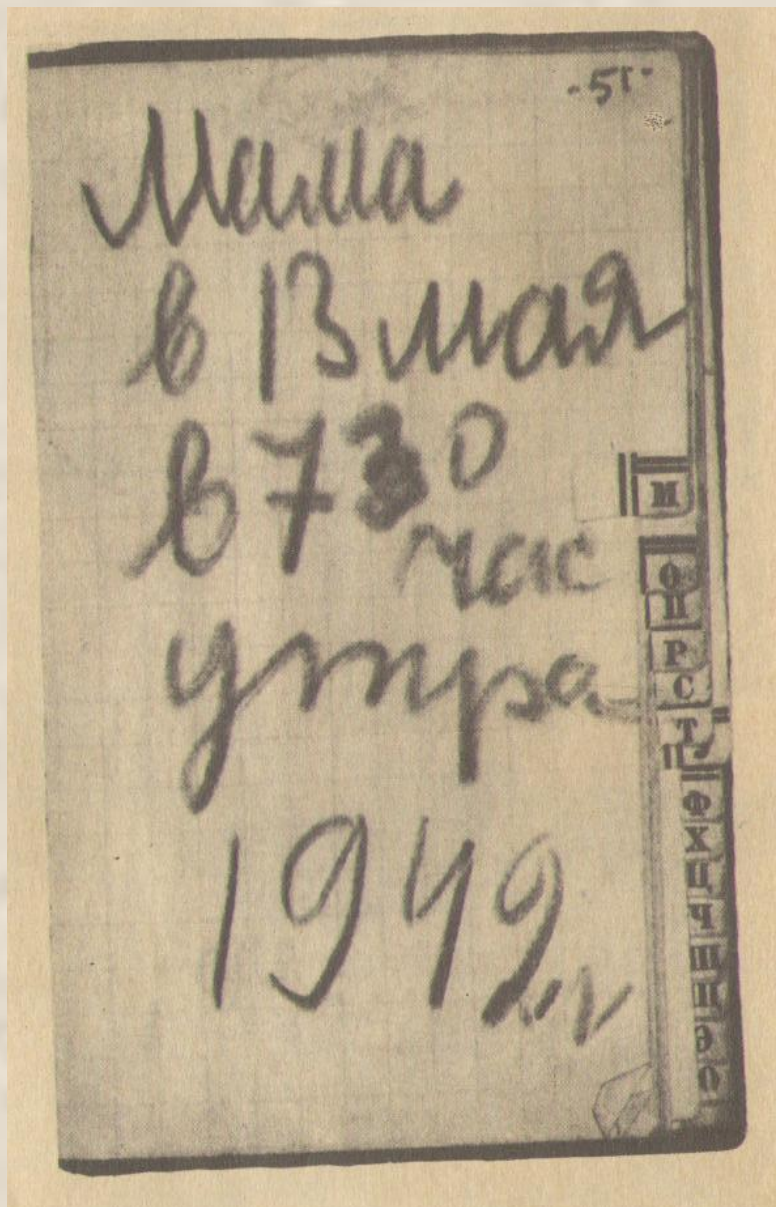 -51-
Мама
в 13 мая
в 7 30
час
утра
1942 г
М
О
П
Р
С
Т
Ф
Х
Ц
Ч
Ш
Щ
Э